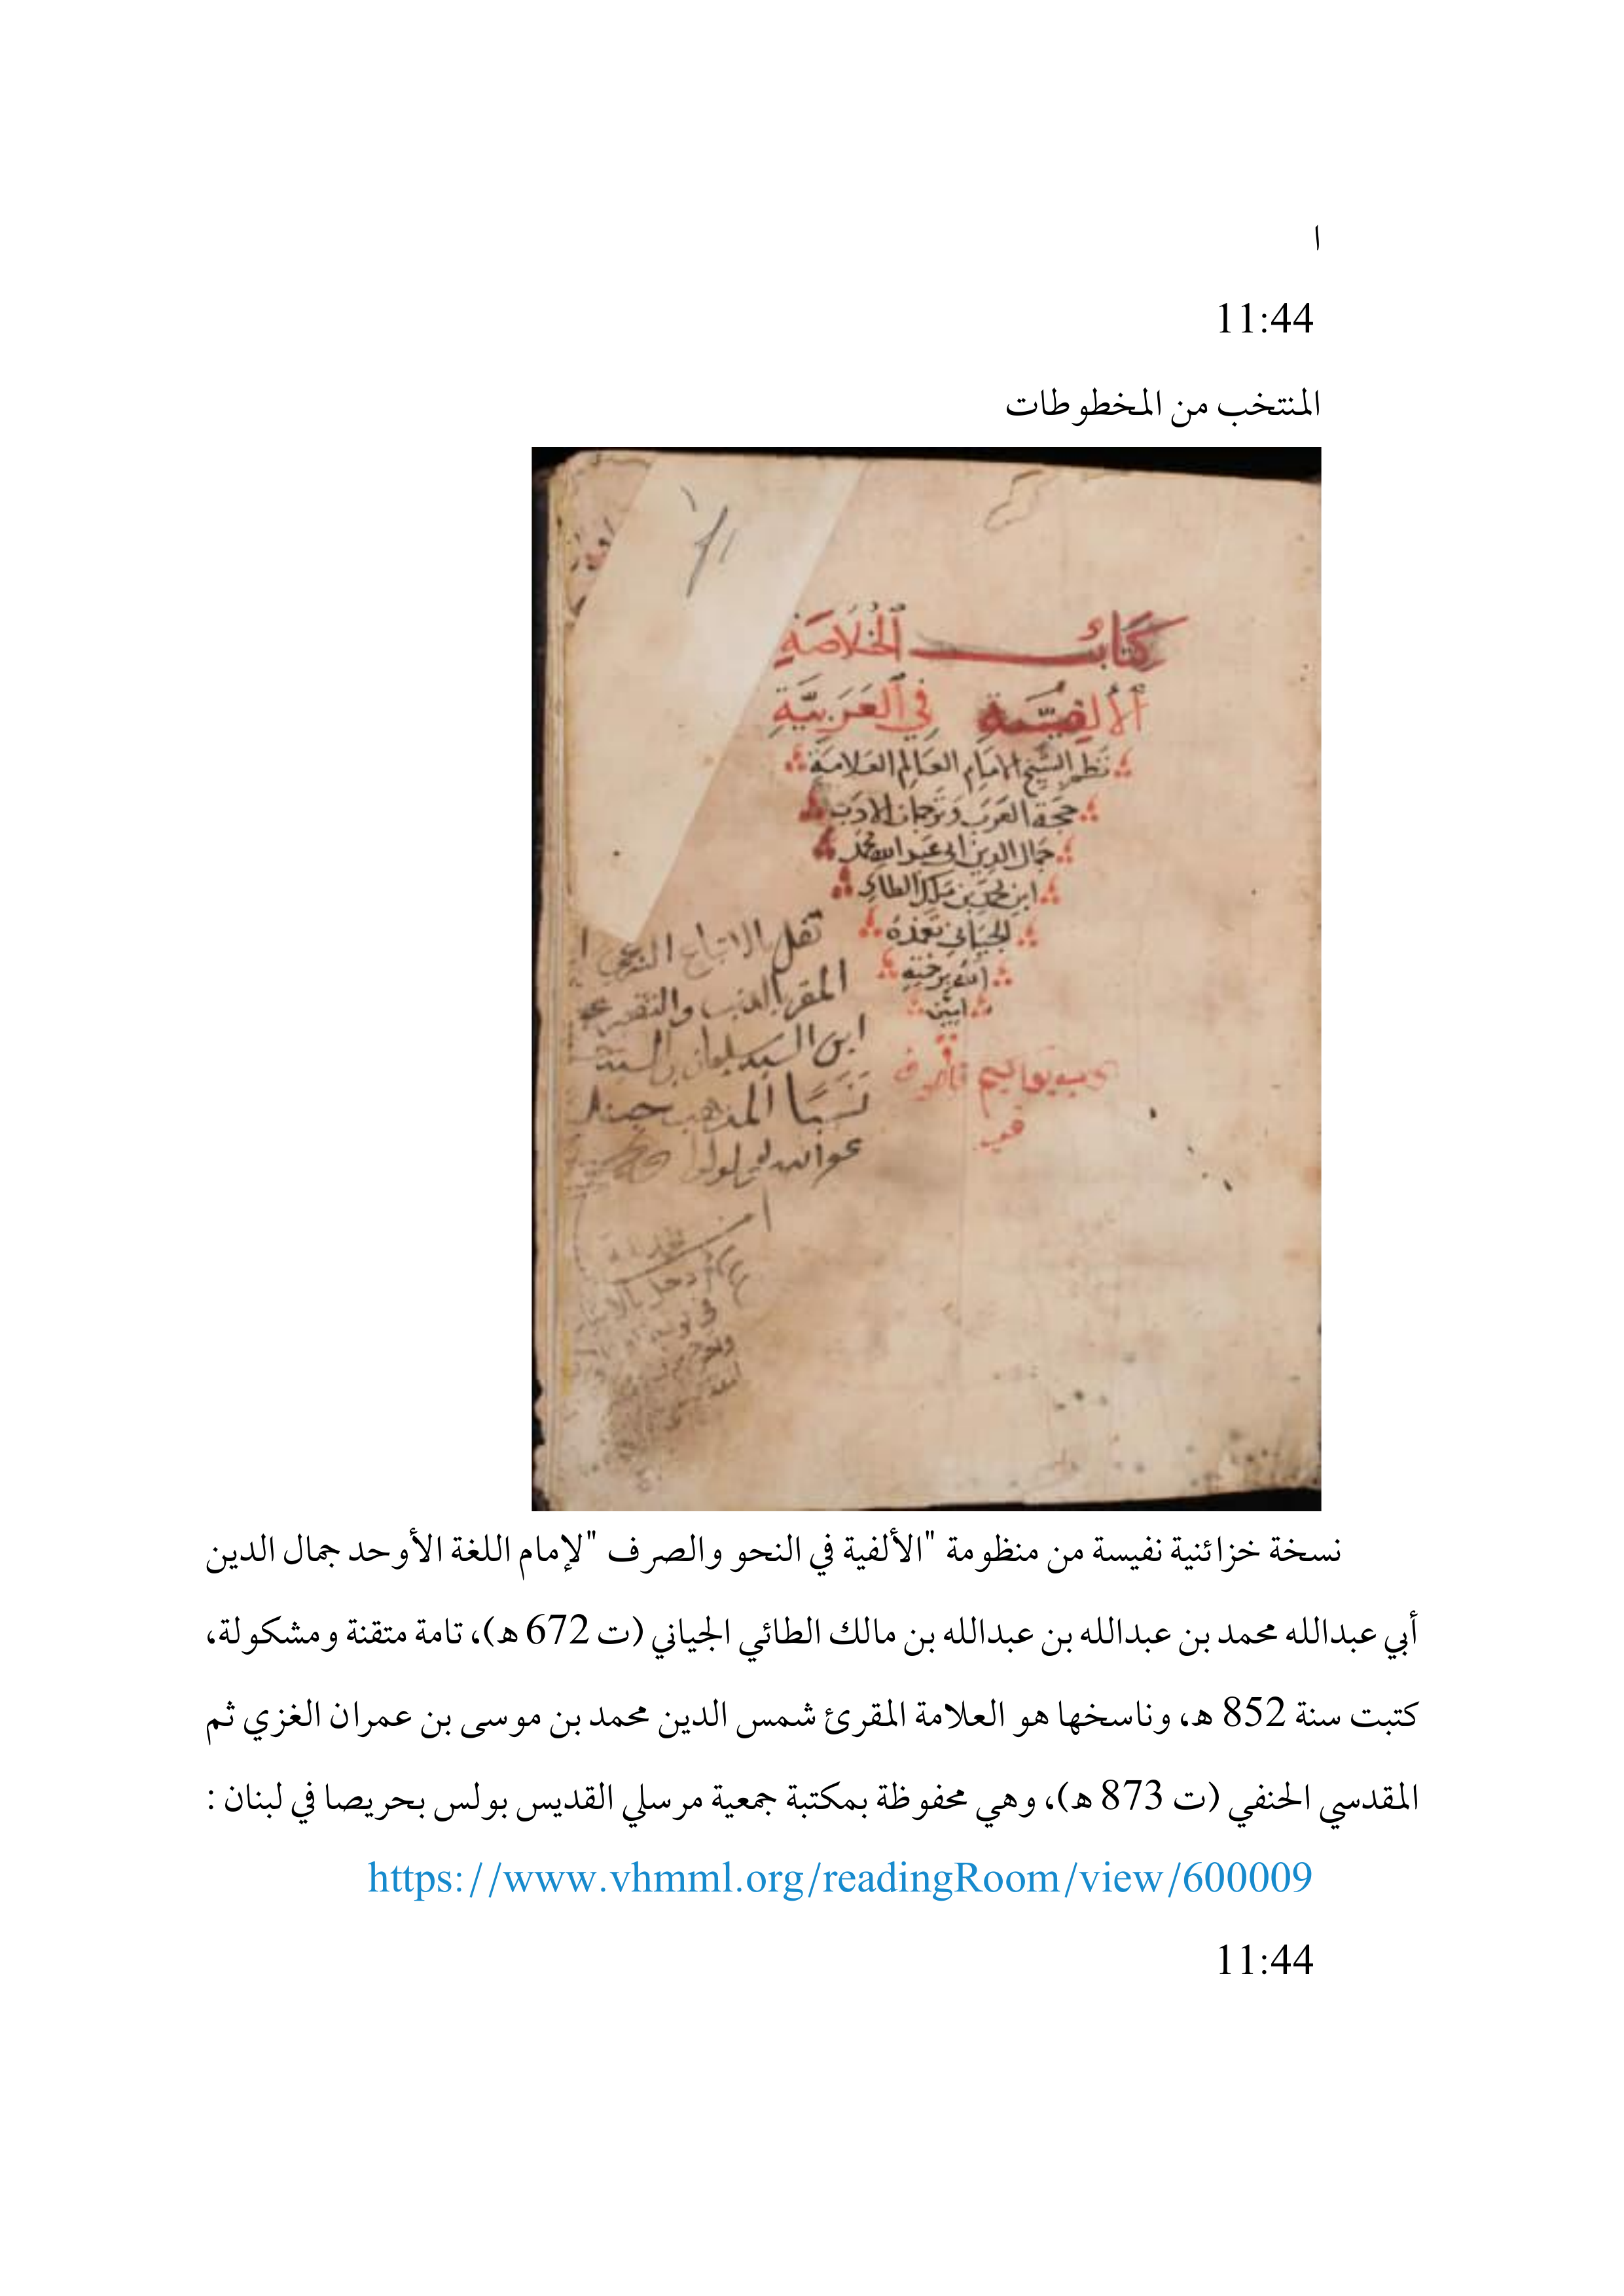 ا
11:44
المنتخب من المخطوطات
كتاب الخلاصة
الألفية في العربية
نظم الشيخ الامام العالم العلامة
حجة العرب وترجمان الادب
جمال الدين ابي عبد الله محمد
ابن محمد بن مالك الطائي
الجياني تغمده
الله برحمته
امين
المقر بالذنب والتقصير
ابن السيد سليمان بن السيد
نسبا المذهب
نسخة خزائنية نفيسة من منظومة "الألفية في النحو والصرف "لإمام اللغة الأوحد جمال الدين
أبي عبدالله محمد بن عبدالله بن عبدالله بن مالك الطائي الجياني (ت 672 ه)، تامة متقنة ومشكولة،
كتبت سنة 852 ه، وناسخها هو العلامة المقرئ شمس الدين محمد بن موسى بن عمران الغزي ثم
المقدسي الحنفي (ت 873 ه)، وهي محفوظة بمكتبة جمعية مرسلي القديس بولس بحريصا في لبنان :
https://www.vhmml.org/readingRoom/view/600009
11:44